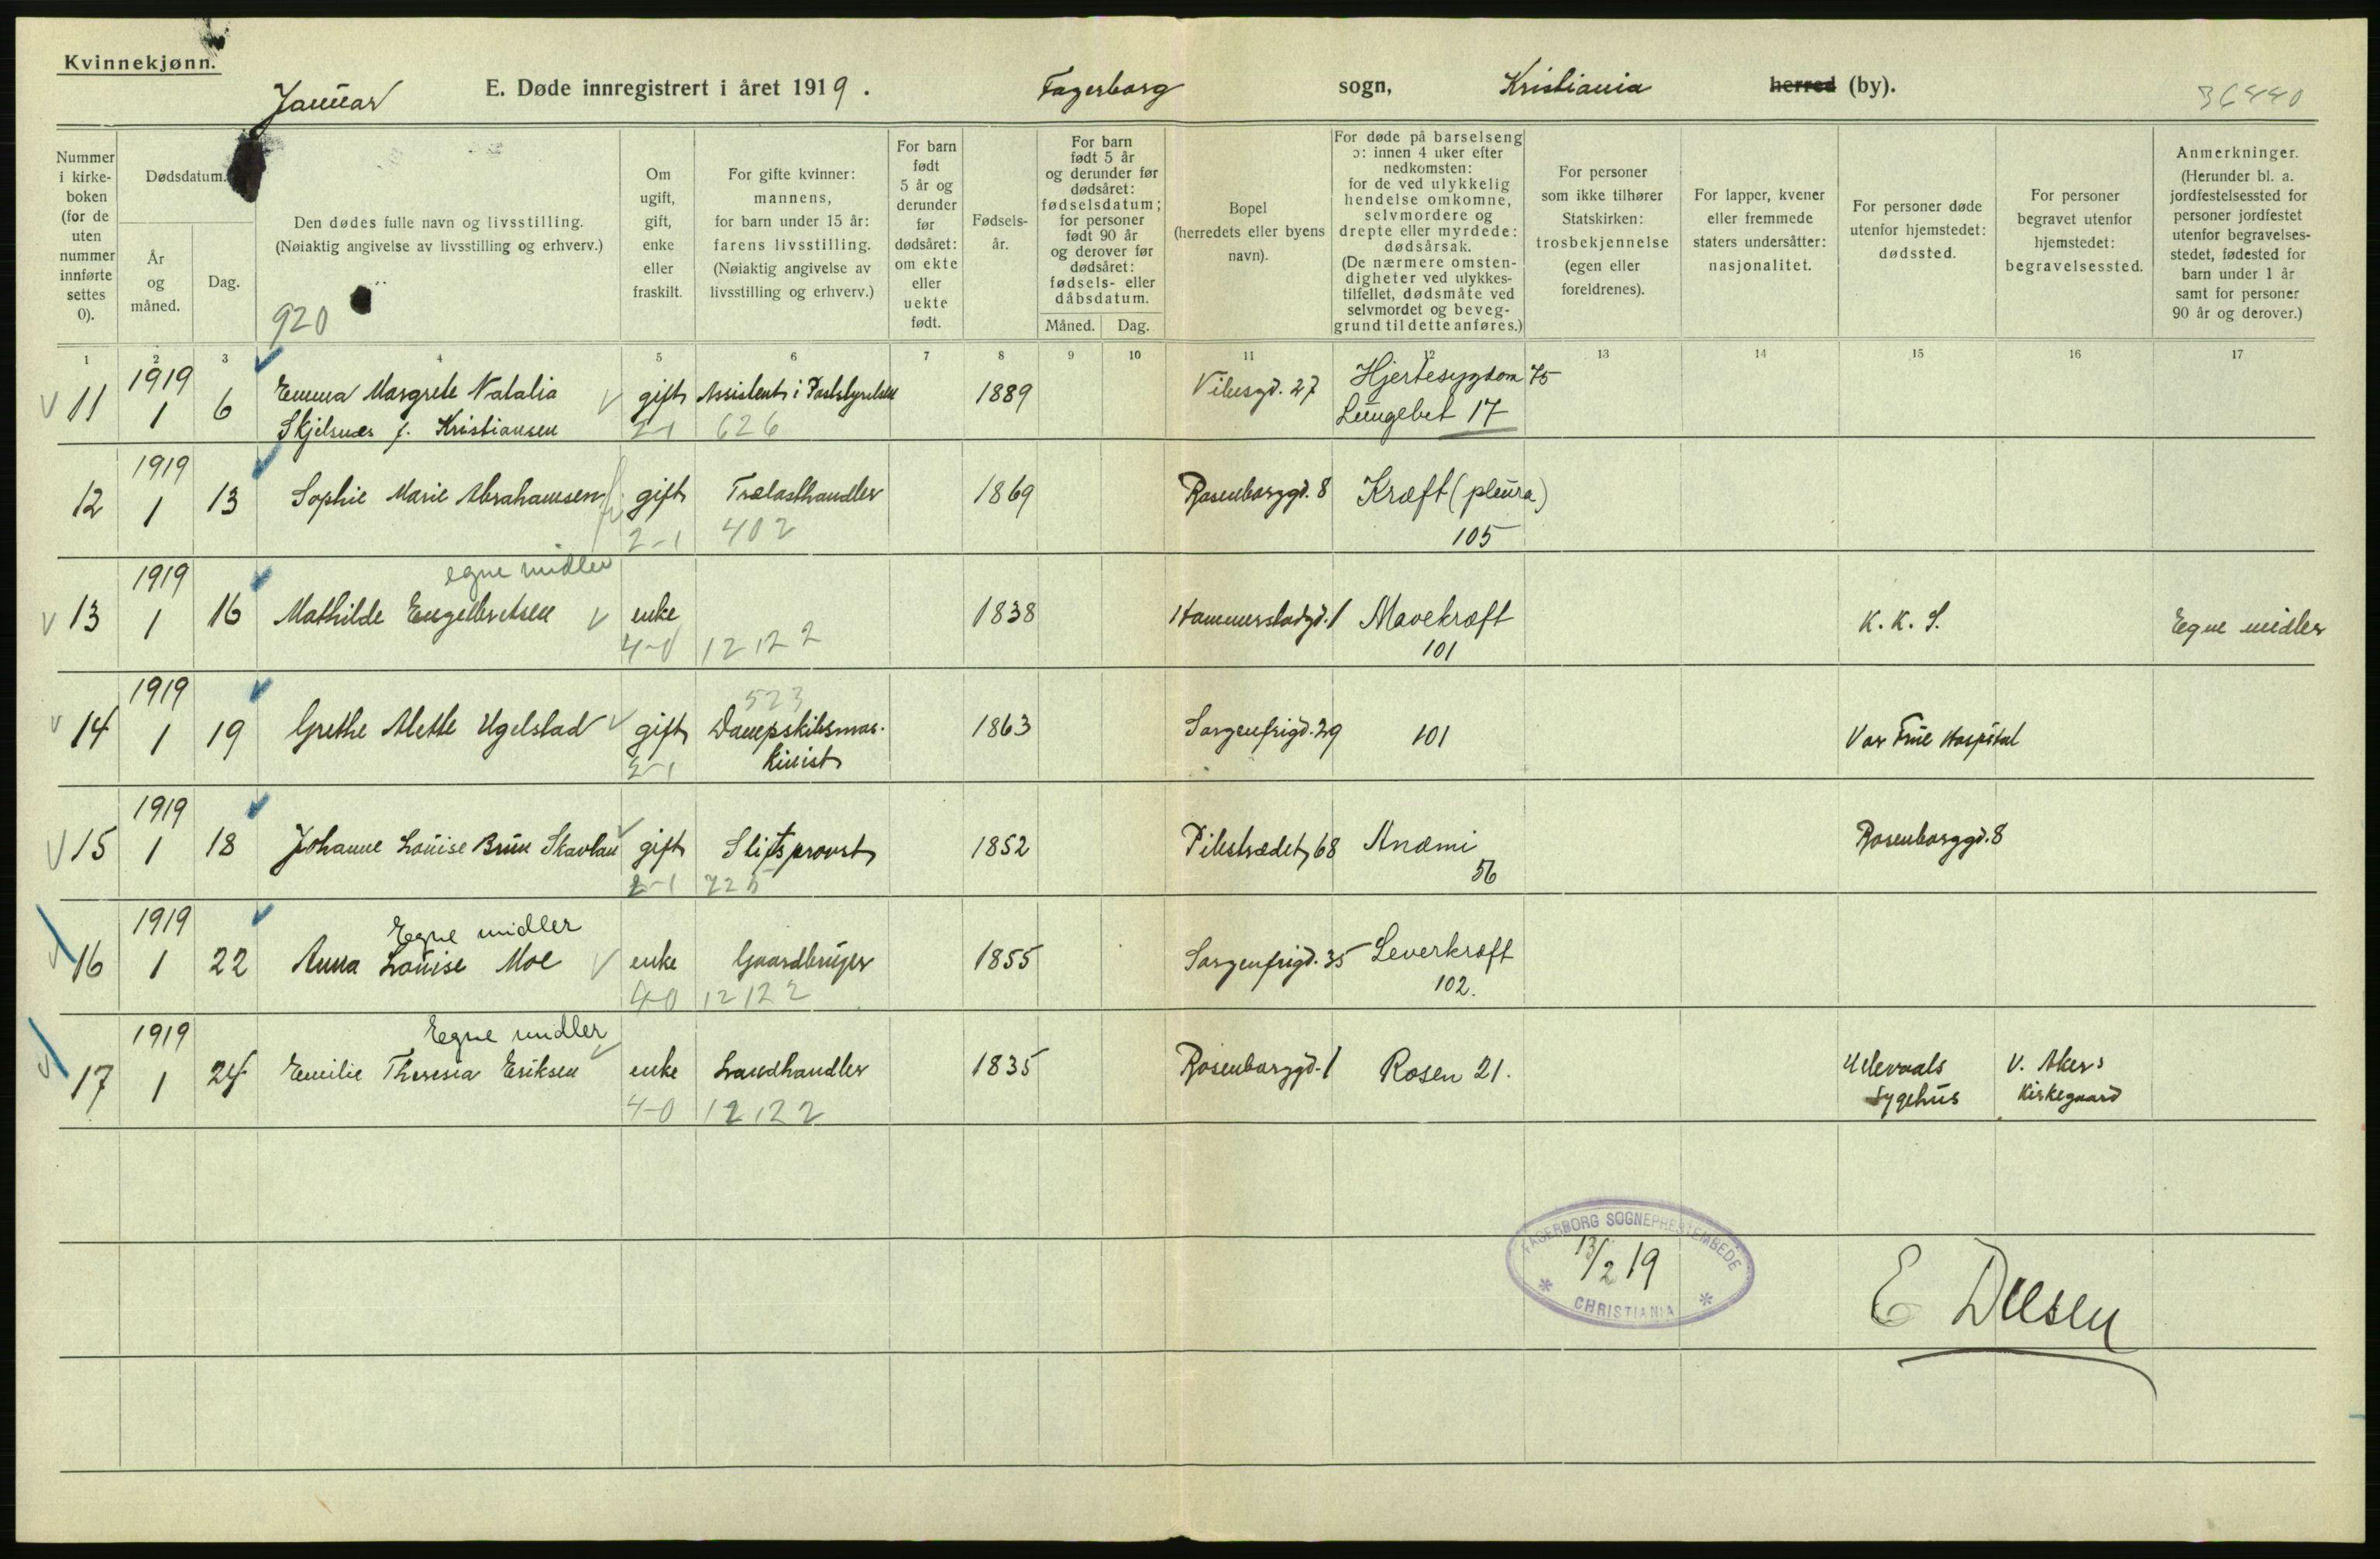 Kvinnekjønn.
Januar
E. Døde innregistrert i året 1919.
Fagerborg sogn,
Kristiania herred (by).
36440
Nummer i kirke-boken (for de uten nummer innførte settes 0).
Dødsdatum.
År og måned.
Dag.
Den dødes fulle navn og livsstilling.
(Nøiaktig angivelse av livsstilling og erhverv.)
920
Om ugift, gift, enke eller fraskilt.
For gifte kvinner: mannens, for barn under 15 år: farens livsstilling. (Nøiaktig angivelse av livsstilling og erhverv.)
For barn født 5 år og derunder før dødsåret: om ekte eller uekte født.
Fødsels-år.
For barn født 5 år og derunder før dødsåret: fødselsdatum; for personer født 90 år og derover før dødsåret: fødsels- eller dåbsdatum.
Måned. Dag.
Bopel (herredets eller byens navn).
For døde på barselseng ɔ: innen 4 uker efter nedkomsten: for de ved ulykkelig hendelse omkomne, selvmordere og drepte eller myrdede: dødsårsak. (De nærmere omsten-digheter ved ulykkes-tilfellet, dødsmåte ved selvmordet og beveg-grund til dette anføres.)
For personer som ikke tilhører Statskirken: trosbekjennelse (egen eller foreldrenes).
For lapper, kvener eller fremmede staters undersåtter: nasjonalitet.
For personer døde utenfor hjemstedet: dødssted.
For personer begravet utenfor hjemstedet: begravelsessted.
Anmerkninger. (Herunder bl. a. jordfestelsessted for personer jordfestet utenfor begravelses-stedet, fødested for barn under 1 år samt for personer 90 år og derover.)
1 2 3 4 5 6 7 8 9 10 11 12 13 14 15 16 17
11 1919 1 6 Emma Margrete Natalia Skjelsnes f. Kristiansen gift 2-1 Assistent i Poststyrelsen 626 1889 Vibesgd. 27 Hjertesygdom 75 Lungebet 17
12 1919 1 13 Sophie Marie Abrahamsen gift 2-1 Trælasthandler 402 1869 Rosenborggd. 8 Kræft (pleura) 105
13 1919 1 16 egne midler Mathilde Engelbretsen enke 4-0 12122 1838 Hammerstadgd. 1 Mavekræft 101 K. K. S. Egne midler
14 1919 1 19 Grethe Alette Ugelstad gift 2-1 523 Dampskibsmas-kinist 1863 Sorgenfrigd. 29 101 Vor Frue Hospital
15 1919 1 18 Johanne Louise Brun Skavlan gift 2-1 Stiftsprovst 725 1852 Pilestrædet 68 Anæmi 56 Rosenborggd. 8
16 1919 1 22 Egne midler Anna Louise Moe enke 4-0 Gaardbruger 12122 1855 Sorgenfrigd. 35 Leverkræft 102.
17 1919 1 24 Egne midler Emilie Theresia Eriksen enke 4-0 Landhandler 12122 1835 Rosenborggd. 1 Rosen 21. Ullevaals Sygehus V. Akers Kirkegaard
FAGERBORG SOGNEPRESTEMBEDE
13/2 19
* CHRISTIANIA *